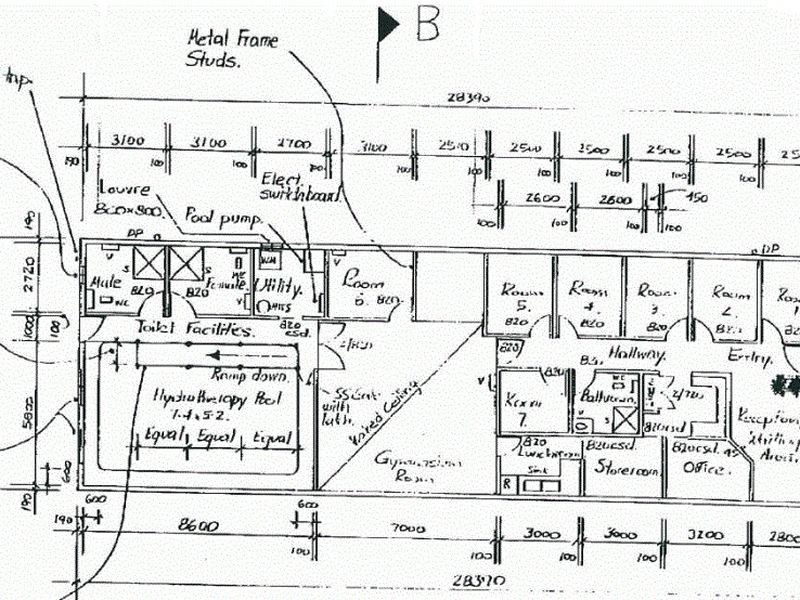 B
Metal Frame
Studs.
28390
3100
3100
2700
3100
2500
2500
2500
2500
190
100
100
100
100
100
100
100
2600
2600
150
100
100
100
Louvre
Pool pump.
Elect.
switchboard.
DP
DP
190
2720
1000
100
5800
600
190
Male
WC
S
820
820
S
Female
WC
V
Utility.
WM
HWS
820
csd.
V
Room
6.
820
Room
5.
820
Room
4.
820
Room
3.
820
Room
2.
820
Toilet Facilities.
Ramp down.
Hydrotherapy Pool
7.4 x 5.2.
Equal
Equal
Equal
2/820
with
Raked Ceiling
Room
820
Hallway.
Entry.
820
Room
7.
Bathroom.
WC
S
2/720
820
Lunchroom
Sink
R
820csd.
Storeroom
820csd
820csd.
Office.
Area.
600
600
190
8600
7000
3000
3000
3200
2800
100
100
100
100
100
28390